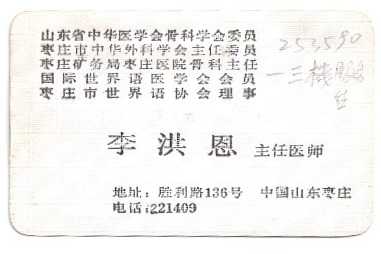 山东省中华医学会骨科学会委员
枣庄市中华外科学会主任委员
枣庄矿务局枣庄医院骨科主任
国际世界语医学会会员
枣庄市世界语协会理事
253590
一三楼服务台
李洪恩 主任医师
地址：胜利路136号 中国山东枣庄
电话:221409